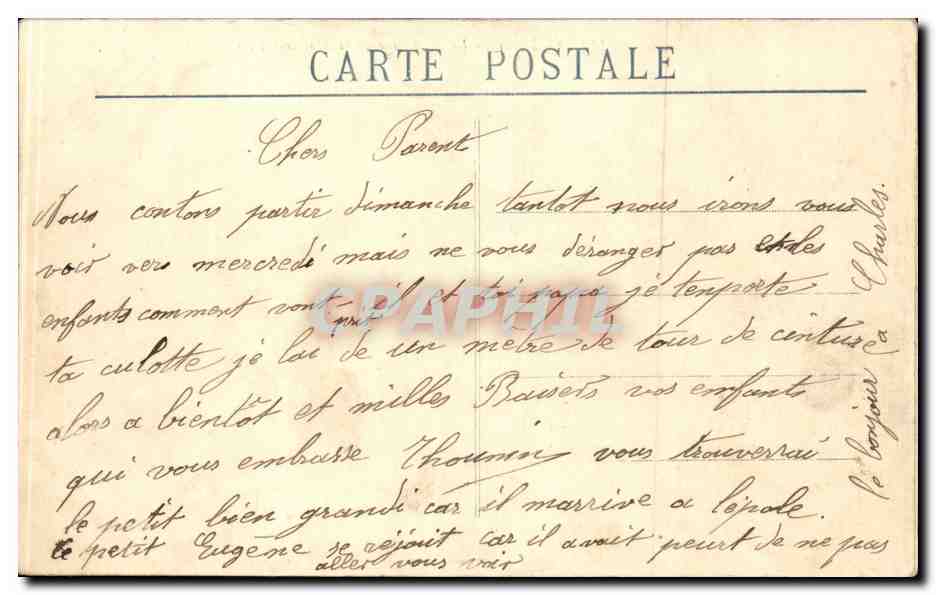 CARTE POSTALE
Chers Parent
Nous contons partir dimanche tantot nous irons vous
voir vers mercredi mais ne vous déranger pas et les
enfants comment vont-il et toi papa je tenporte
ta culotte je lai pris de un metre de tour de cinture
alors a bientôt et milles Baisers vos enfants
qui vous embrasse Thounin vous trouverrai
le petit bien grandi car il marrive a lépole.
le petit Eugène se réjouit car il avait peurt de ne pas
aller vous voir
le bonjour a Charles.
CPAPHIL